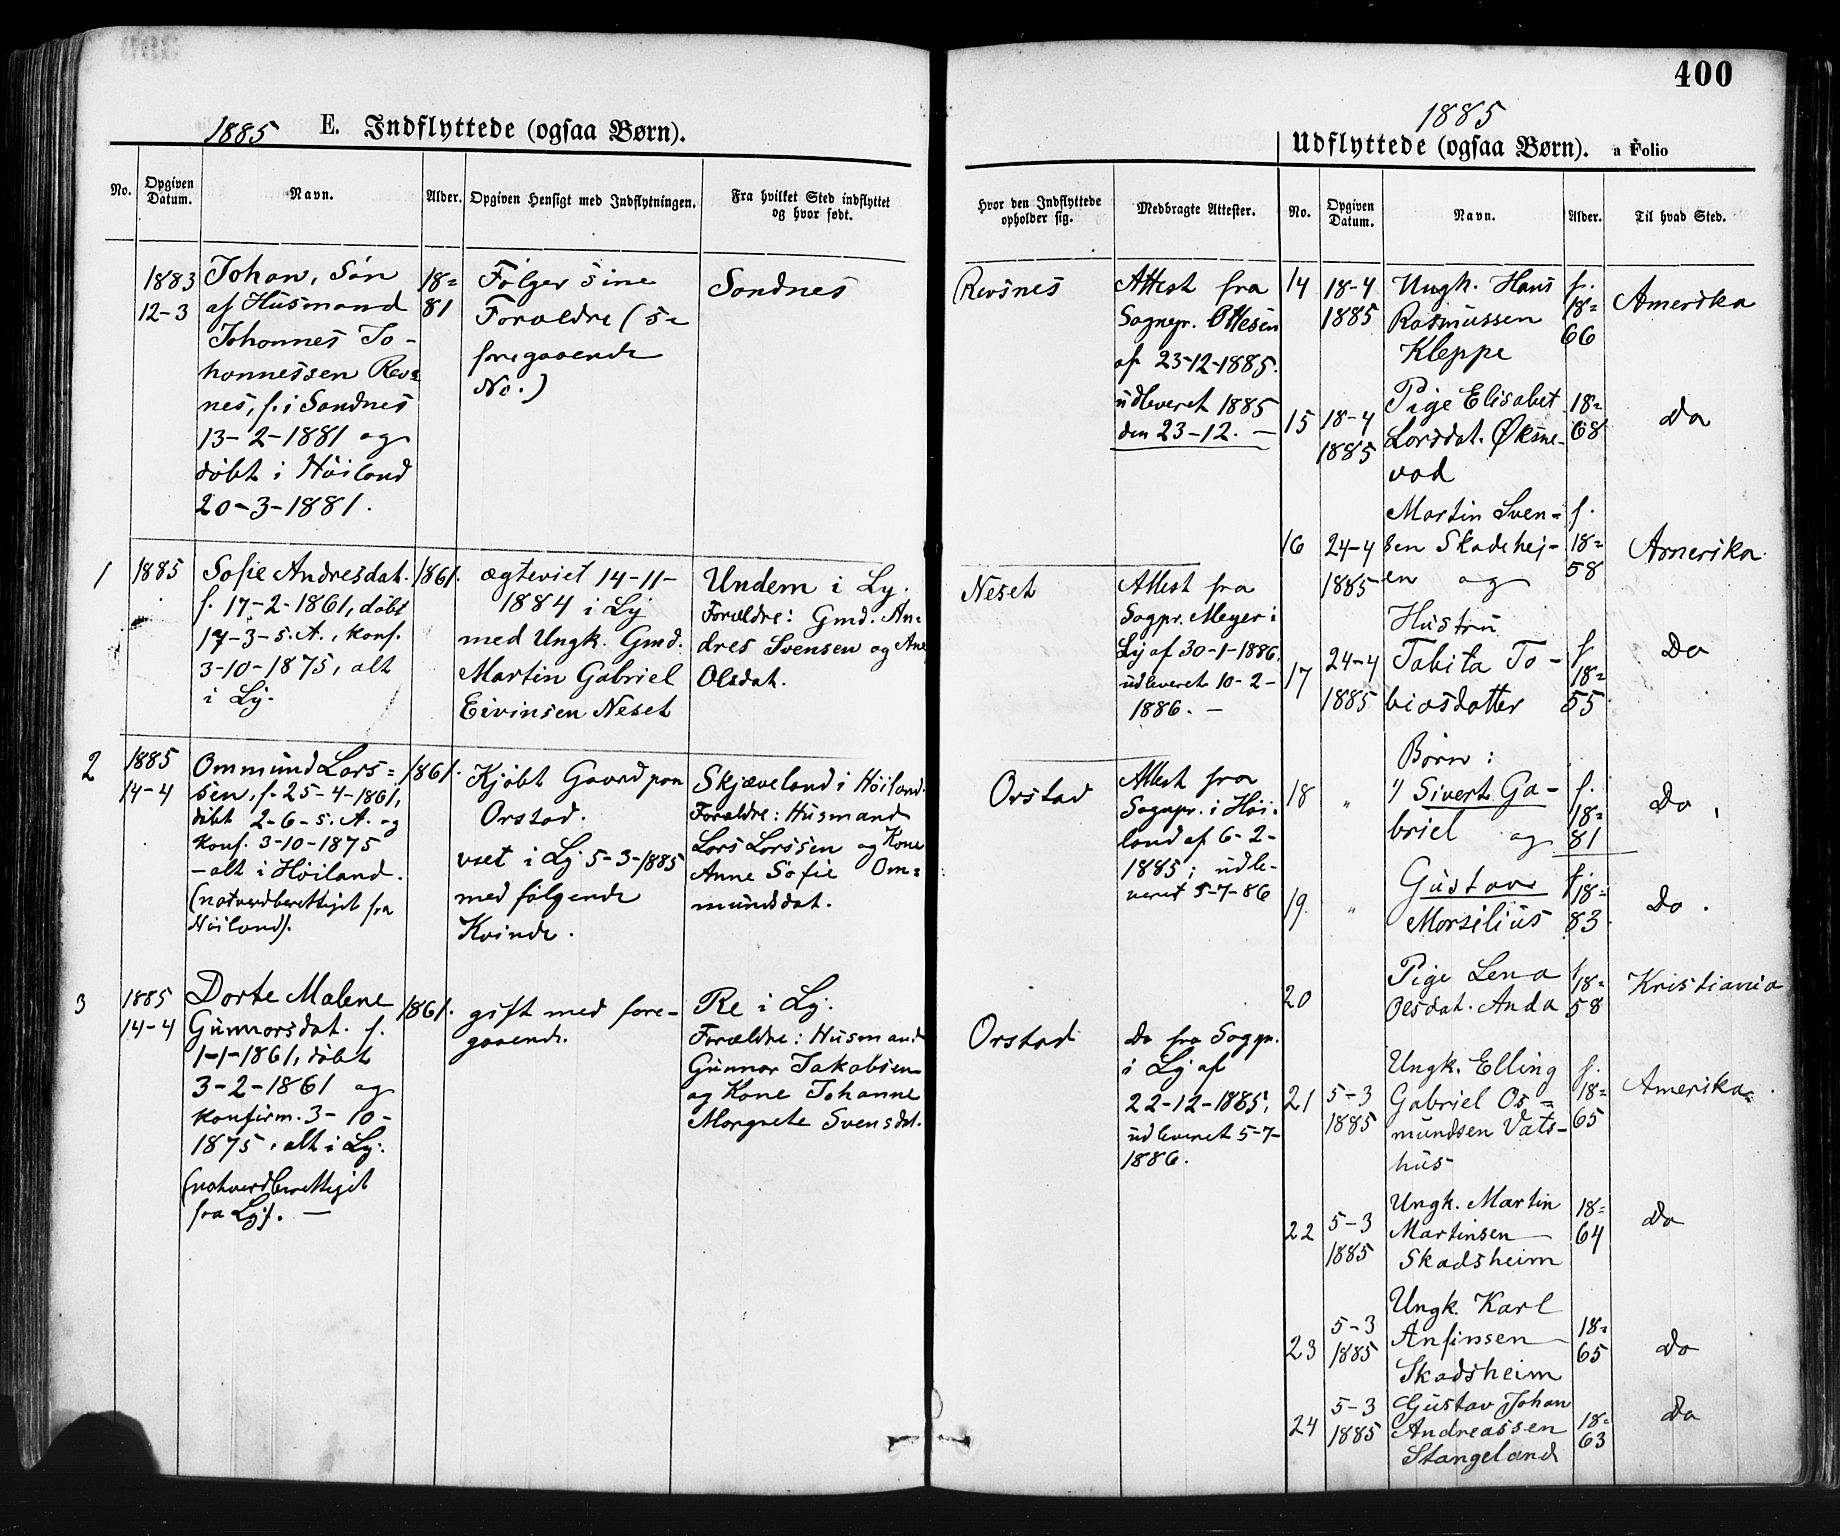 400
1885 E. Indflyttede (ogsaa Børn).
No.
Opgiven
Datum.
Navn.
Alder.
Opgiven Hensigt med Indflytningen.
Fra hvilket Sted indflyttet
og hvor født.
1883
12-3
Johan, Søn
af Husmand
Johannes Jo-
hannessen Revs=
nes, f. i Sandnes
13-2-1881 og
døbt i Höiland
20-3-1881.
18=
81
Følger sine
Forældre (s=
foregaaende
No.)
Sandnes
1
1885
Sofie Andresdat.
f. 17-2-1861, døbt
17-3-s.A., konf.
3-10-1875, alt
i Ly.
1861.
ægteviet 14-11-
1884 i Ly
med Ungk. Gmd.
Martin Gabriel
Eivinsen Neset
Undem i Ly.
Forældre: Gmd. An=
dres Svensen og Ane
Olsdat.
2
1885
14-4
Ommund Lars=
sen, f. 25-4-1861,
døbt 2-6-s.A. og
konf. 3-10-1875
-alt i Höiland.
(natverdberettiget fra
Höiland).
1861.
Kjøbt Gaard paa
Orstad.
viet i Ly 5-3-1885
med følgende
Kvinde.
Skjæveland i Höiland.
Forældre: Husmand
Lars Larssen og Kone
Anne Sofie Om=
mundsdat.
3
1885
14-4
Dorte Malene
Gunnarsdat. f.
1-1-1861, døbt
3-2-1861 og
konfirm. 3-10-
1875, alt i Ly.
(natverdberettiget
fra Ly). —
1861.
gift med fore-
gaaende.
Re i Ly.
Forældre: Husmand
Gunnar Jakobsen
og Kone Johanne
Margrete Svensdat.
1885
Udflyttede (ogsaa Børn). a Folio
Hvor den Indflyttede
opholder sig.
Medbragte Attester.
No.
Opgiven
Datum.
Navn.
Alder.
Til hvad Sted.
Revsnes
Attest fra
Sognepr. Ottesen
af 23-12-1885.
udleveret 1885
den 23-12. —
Neset
Attest fra
Sogpr. Meyer i
Ly af 30-1-1886,
udleveret 10-2-
1886. —
Orstad
Attest fra
Sognpr. i Höi-
land af 6-2-
1885; udle-
veret 5-7-86
Orstad
Do fra Sogpr.
i Ly af
22-12-1885,
udleveret 5-7-
1886.
14
18-4
1885
Ungk. Hans
Rasmussen
Kleppe
f.
18=
66
Amerika
15
18-4
1885
Pige Elisabet
Larsdat. Øksne-
vad
18=
68
Do
16
24-4
1885
Martin Sven=
sen Skadehei-
en og
f.
18=
58
Amerika.
17
24-4
1885
Hustru
Tabita To-
biasdatter
f
18=
55
Do
Børn:
18
"
1) Sivert Ga-
briel og
f.
18=
81
Do.
19.
"
Gustav
Marsilius
f.
18=
83.
Do.
20
Pige Lena
Olsdat. Anda
f
18=
58
Kristiania
21
5-3
1885
Ungk. Elling
Gabriel Os=
mundsen Vats-
hus
f.
18=
65
Amerika.
22
5-3
1885
Ungk. Martin
Martinsen
Skadsheim
18=
64
Do
23
5-3
1885
Ungk. Karl
Anfinsen
Skadsheim
18=
65
Do
24
5-3
1885
Gustav Johan
Andreassen
Stangeland
18=
63
Do